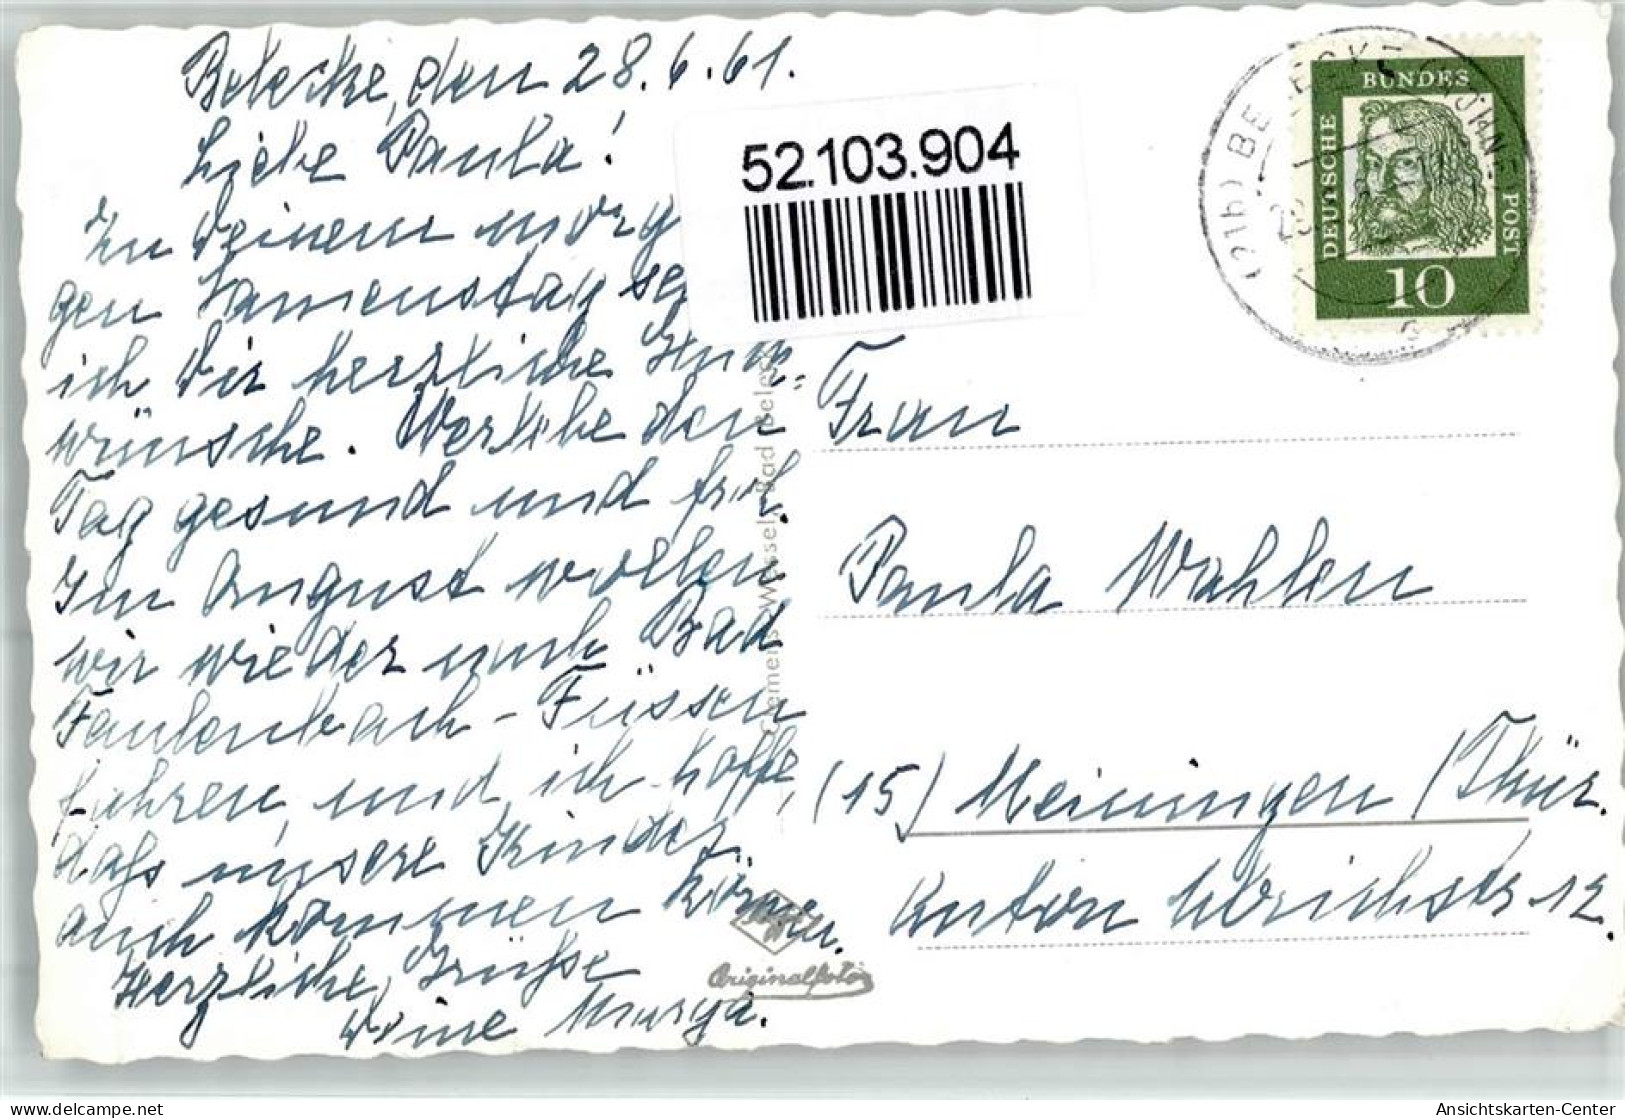 Belecke, den 28.6.61.
Liebe Paula!
Zu Deinem morg
gen Namenstag se
ich Dir herzliche Glück=
wünsche. Verlebe den
Tag gesund und froh.
Im August wollen
wir wieder nach Bad
Faulenbach-Füssen
fahren, und ich hoffe,
daß unsere Kinder
auch kommen können.
Herzliche Grüße
Deine Marga.
52.103.904
Clemens Wessel, Bad Belecke
Originalfoto
DEUTSCHE
BUNDES
POST
10
(21b) BELECKE (MÖHNE)
Frau
Paula Wahlen
(15) Meiningen (Thür.
Anton Ulrichstr 12.
Ansichtskarten-Center